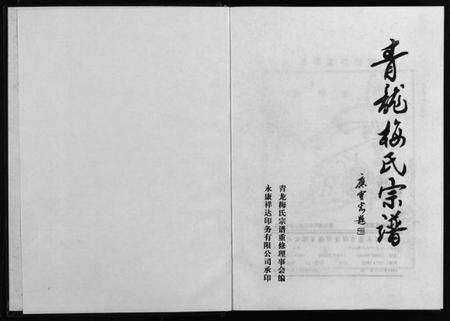 青龙梅氏宗谱
青龙梅氏宗谱重修理事会编
永康祥达印务有限公司承印